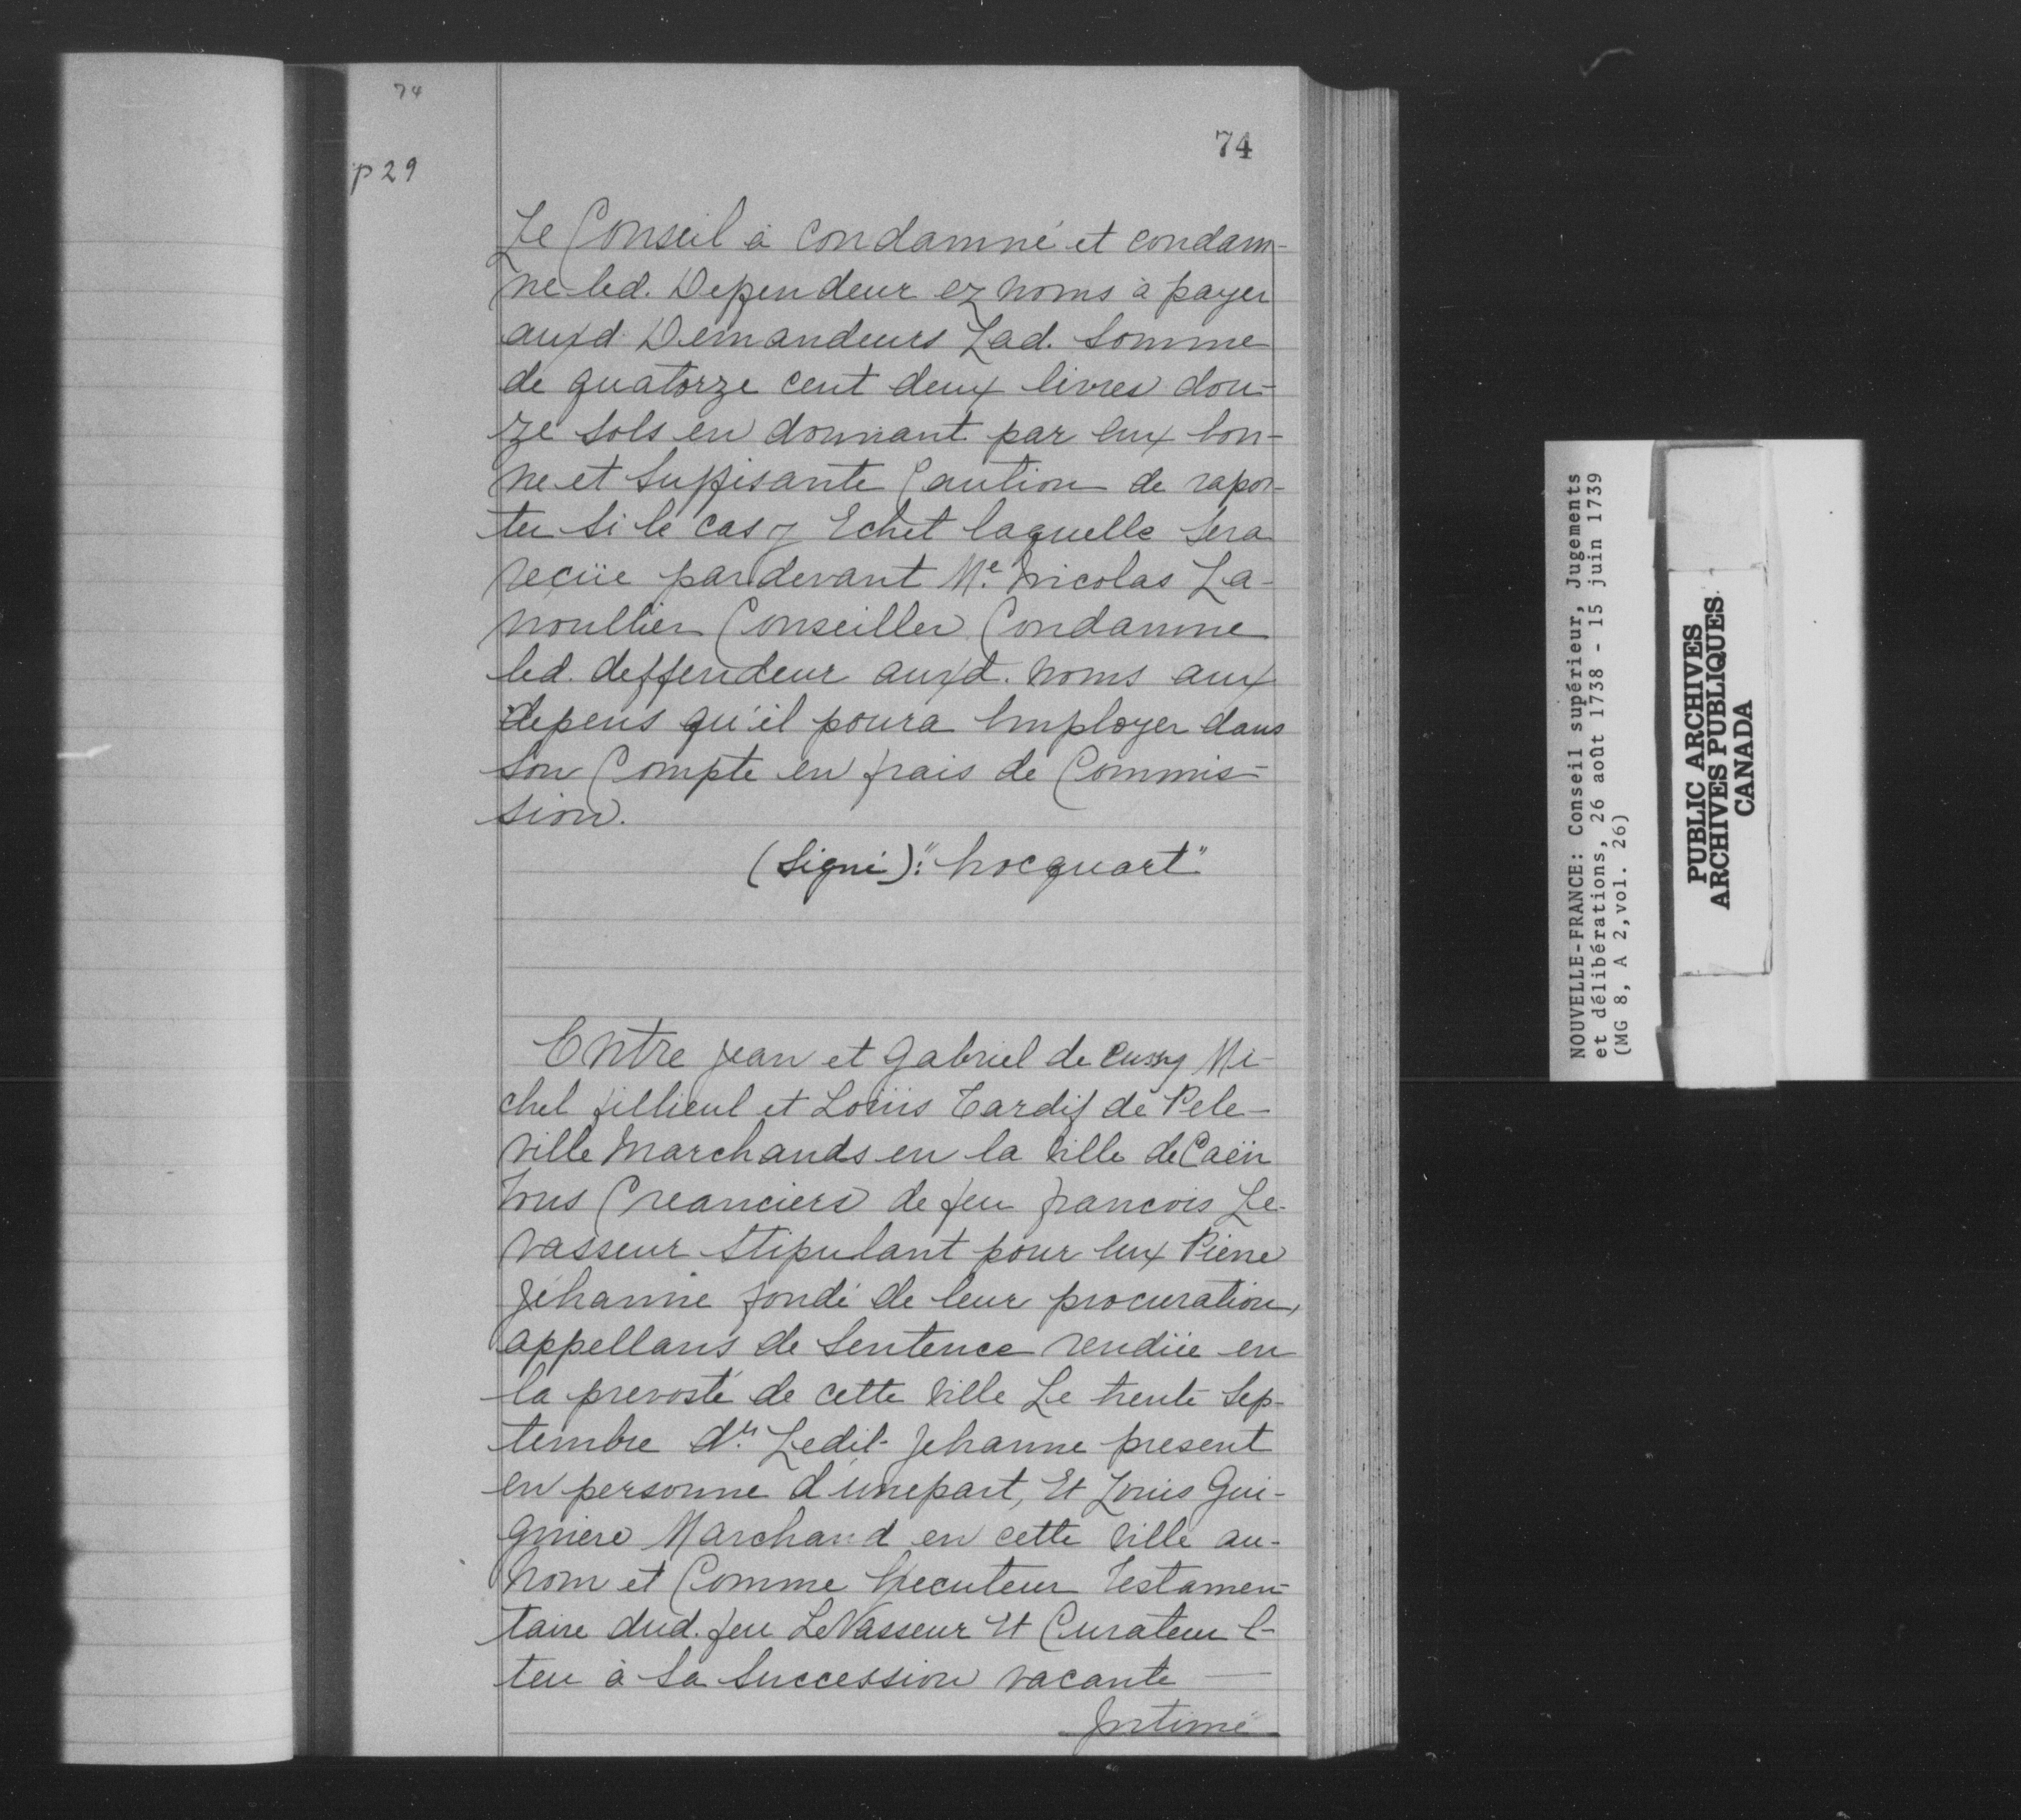 74
74
p 29
Le Conseil à condamné et condam-
ne led. Deffendeur ez noms à payer
auxd. Demandeurs Lad. Somme
de quatorze cent deux livres dou-
ze sols en donnant par eux bon-
ne et suffisante Caution de rapor-
ter si le cas y Echet laquelle sera
reçüe pardevant Me. Nicolas La-
noullier Conseiller Condamne
led. deffendeur auxd. noms aux
depens qu'il poura Employer dans
son Compte en frais de Commis-
sion.
(Signé): "hocquart"
Entre Jean et Gabriel de Cussy Mi-
chel fillieul et Loüis Tardif de Pele-
ville Marchands en la Ville de Caën
tous Creanciers de feu francois Le-
vasseur Stipulant pour Eux Pierre
Jéhanne fondé de leur procuration,
appellans de Sentence rendüe en
la prevosté de cette Ville Le trente Sep-
tembre der. Ledit Jehanne present
en personne d'unepart, Et Louis Gui-
gniere Marchand en cette Ville au
Nom et Comme Executeur Testamen-
taire dud. feu LeVasseur Et Curateur E-
leu à Sa Succession vacante
Intimé
NOUVELLE-FRANCE: Conseil supérieur, Jugements
et délibérations, 26 août 1738 - 15 juin 1739
(MG 8, A 2,vol. 26)
PUBLIC ARCHIVES
ARCHIVES PUBLIQUES
CANADA